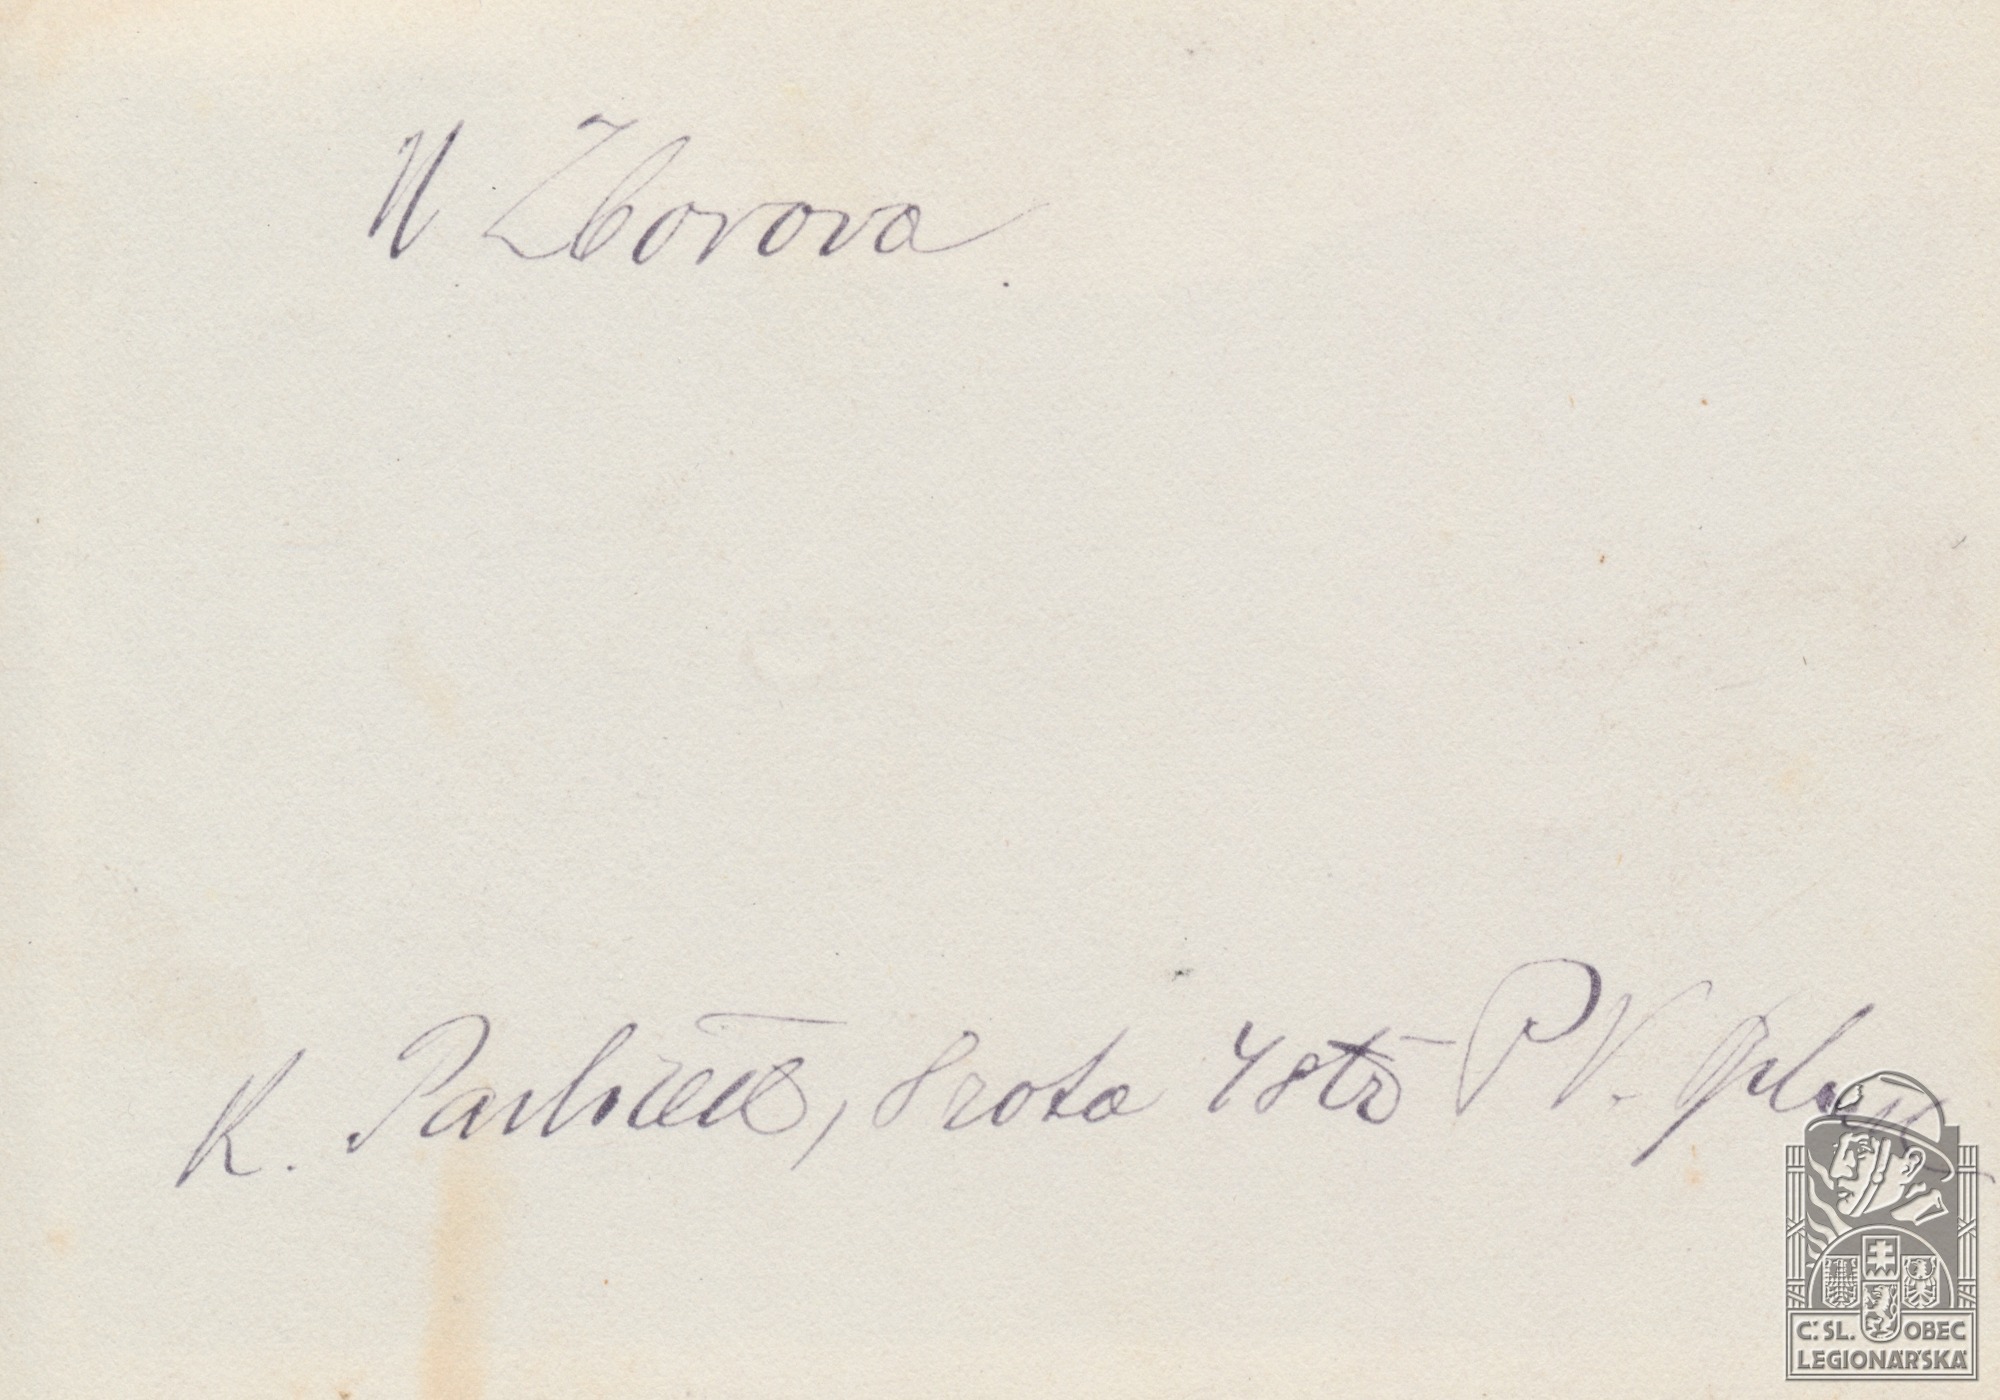 U Zborova.
K. Pavlíček, 8 rota 4 stř P V.
Č:SL. OBEC
LEGIONÁŘSKÁ